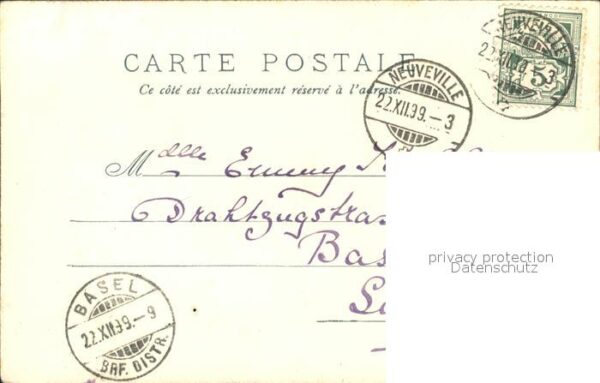 CARTE POSTALE
Ce côté est exclusivement réservé à l'adresse.
NEUVEVILLE
22.XII.99.-3
NEUVEVILLE
22.XII.99
5
Mdlle Emmy
Drahtzugstras
Bas
privacy protection
Datenschutz
BASEL
22.XII.99.-9
BRF. DISTR.